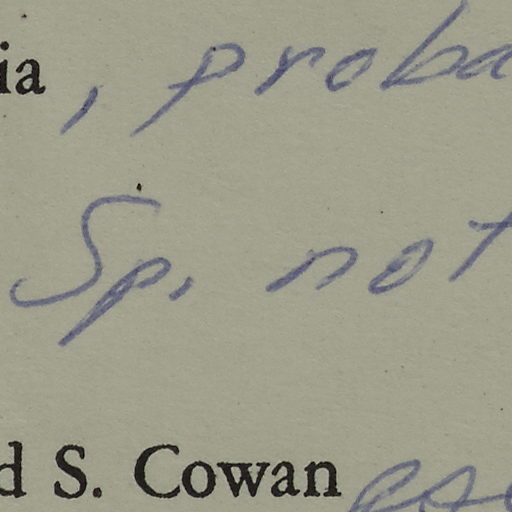 ia, proba
Sp. not
d S. Cowan